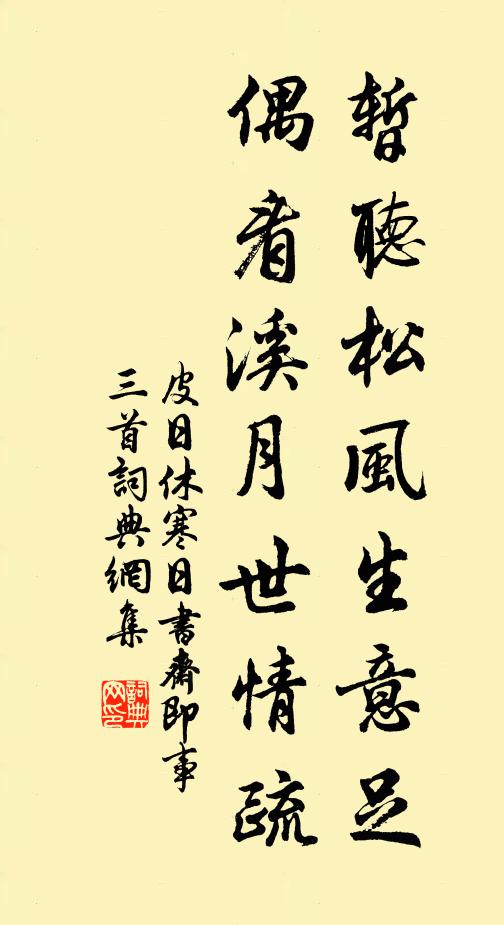 暫聽松風生意足
偶看溪月世情疏
皮日休寒日書齋即事
三首詞典網集
詞典
网印